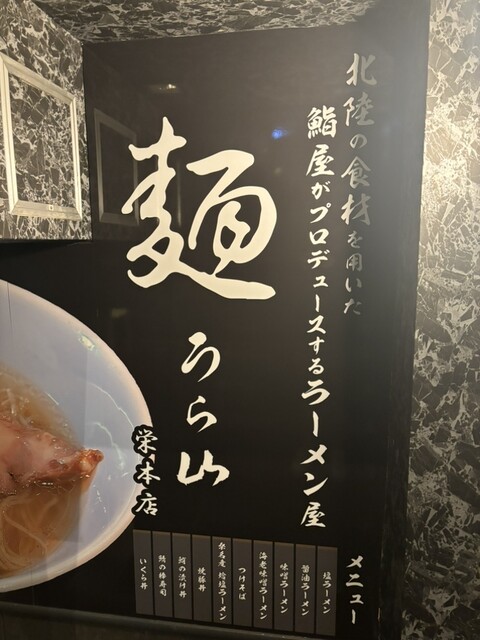 北陸の食材を用いた
鮨屋がプロデュースするラーメン屋
麺
うら山
栄本店
メニュー
塩ラーメン
醤油ラーメン
味噌ラーメン
海老味噌ラーメン
つけそば
蛤塩ラーメン
焼豚丼
鯖の棒寿司
いくら丼